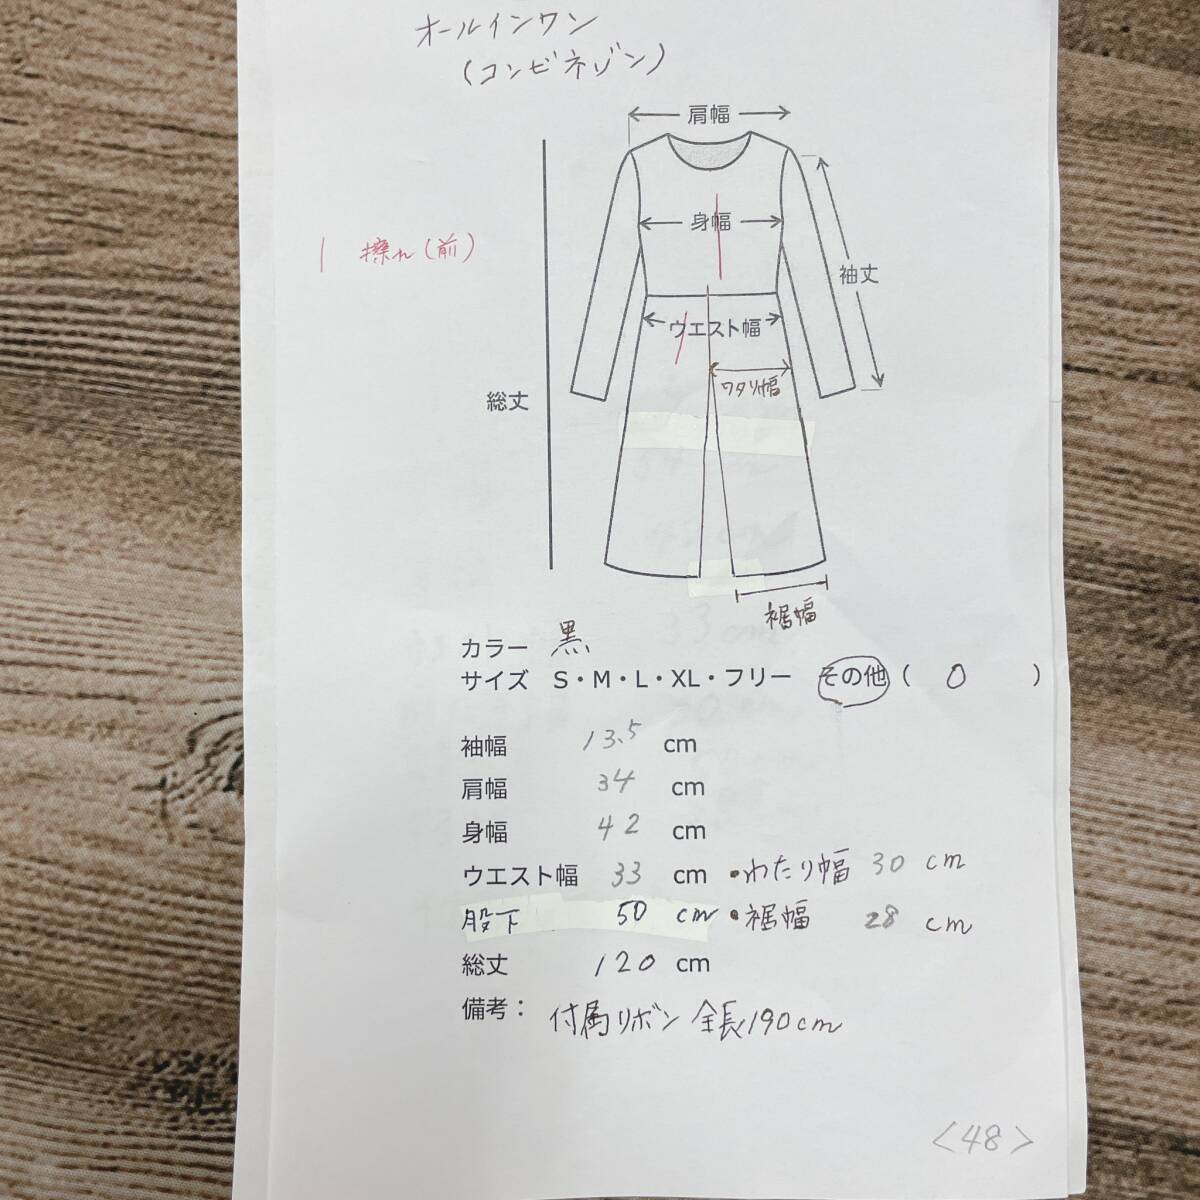 オールインワン
(コンビネゾン)
肩幅
身幅
| 擦れ(前)
袖丈
ウエスト幅
ワタリ幅
総丈
裾幅
カラー 黒
サイズ S・M・L・XL・フリー その他( 0 )
袖幅 13.5 cm
肩幅 34 cm
身幅 42 cm
ウエスト幅 33 cm ・わたり幅 30 cm
股下 50 cm ・裾幅 28 cm
総丈 120 cm
備考: 付属リボン 全長190cm
<48>